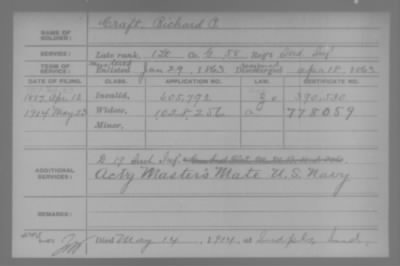 Craft, Richard P.
NAME OF SOLDIER:
SERVICE: Late rank, 1st Co. G, 55 Reg't Ind. Inf.
TERM OF SERVICE: Enlisted Jan 29, 1863 Discharged Apr. 18, 1863
DATE OF FILING. CLASS. APPLICATION NO. LAW. CERTIFICATE NO.
1887 Apr. 12 Invalid, 605,792 390,530
1914 May 23 Widow, 1028,256 778059
Minor,
ADDITIONAL SERVICES: D 19 Ind. Inf.
Actg Master's Mate U.S. Navy
REMARKS:
Died May 14, 1914, at Indpls, Ind.